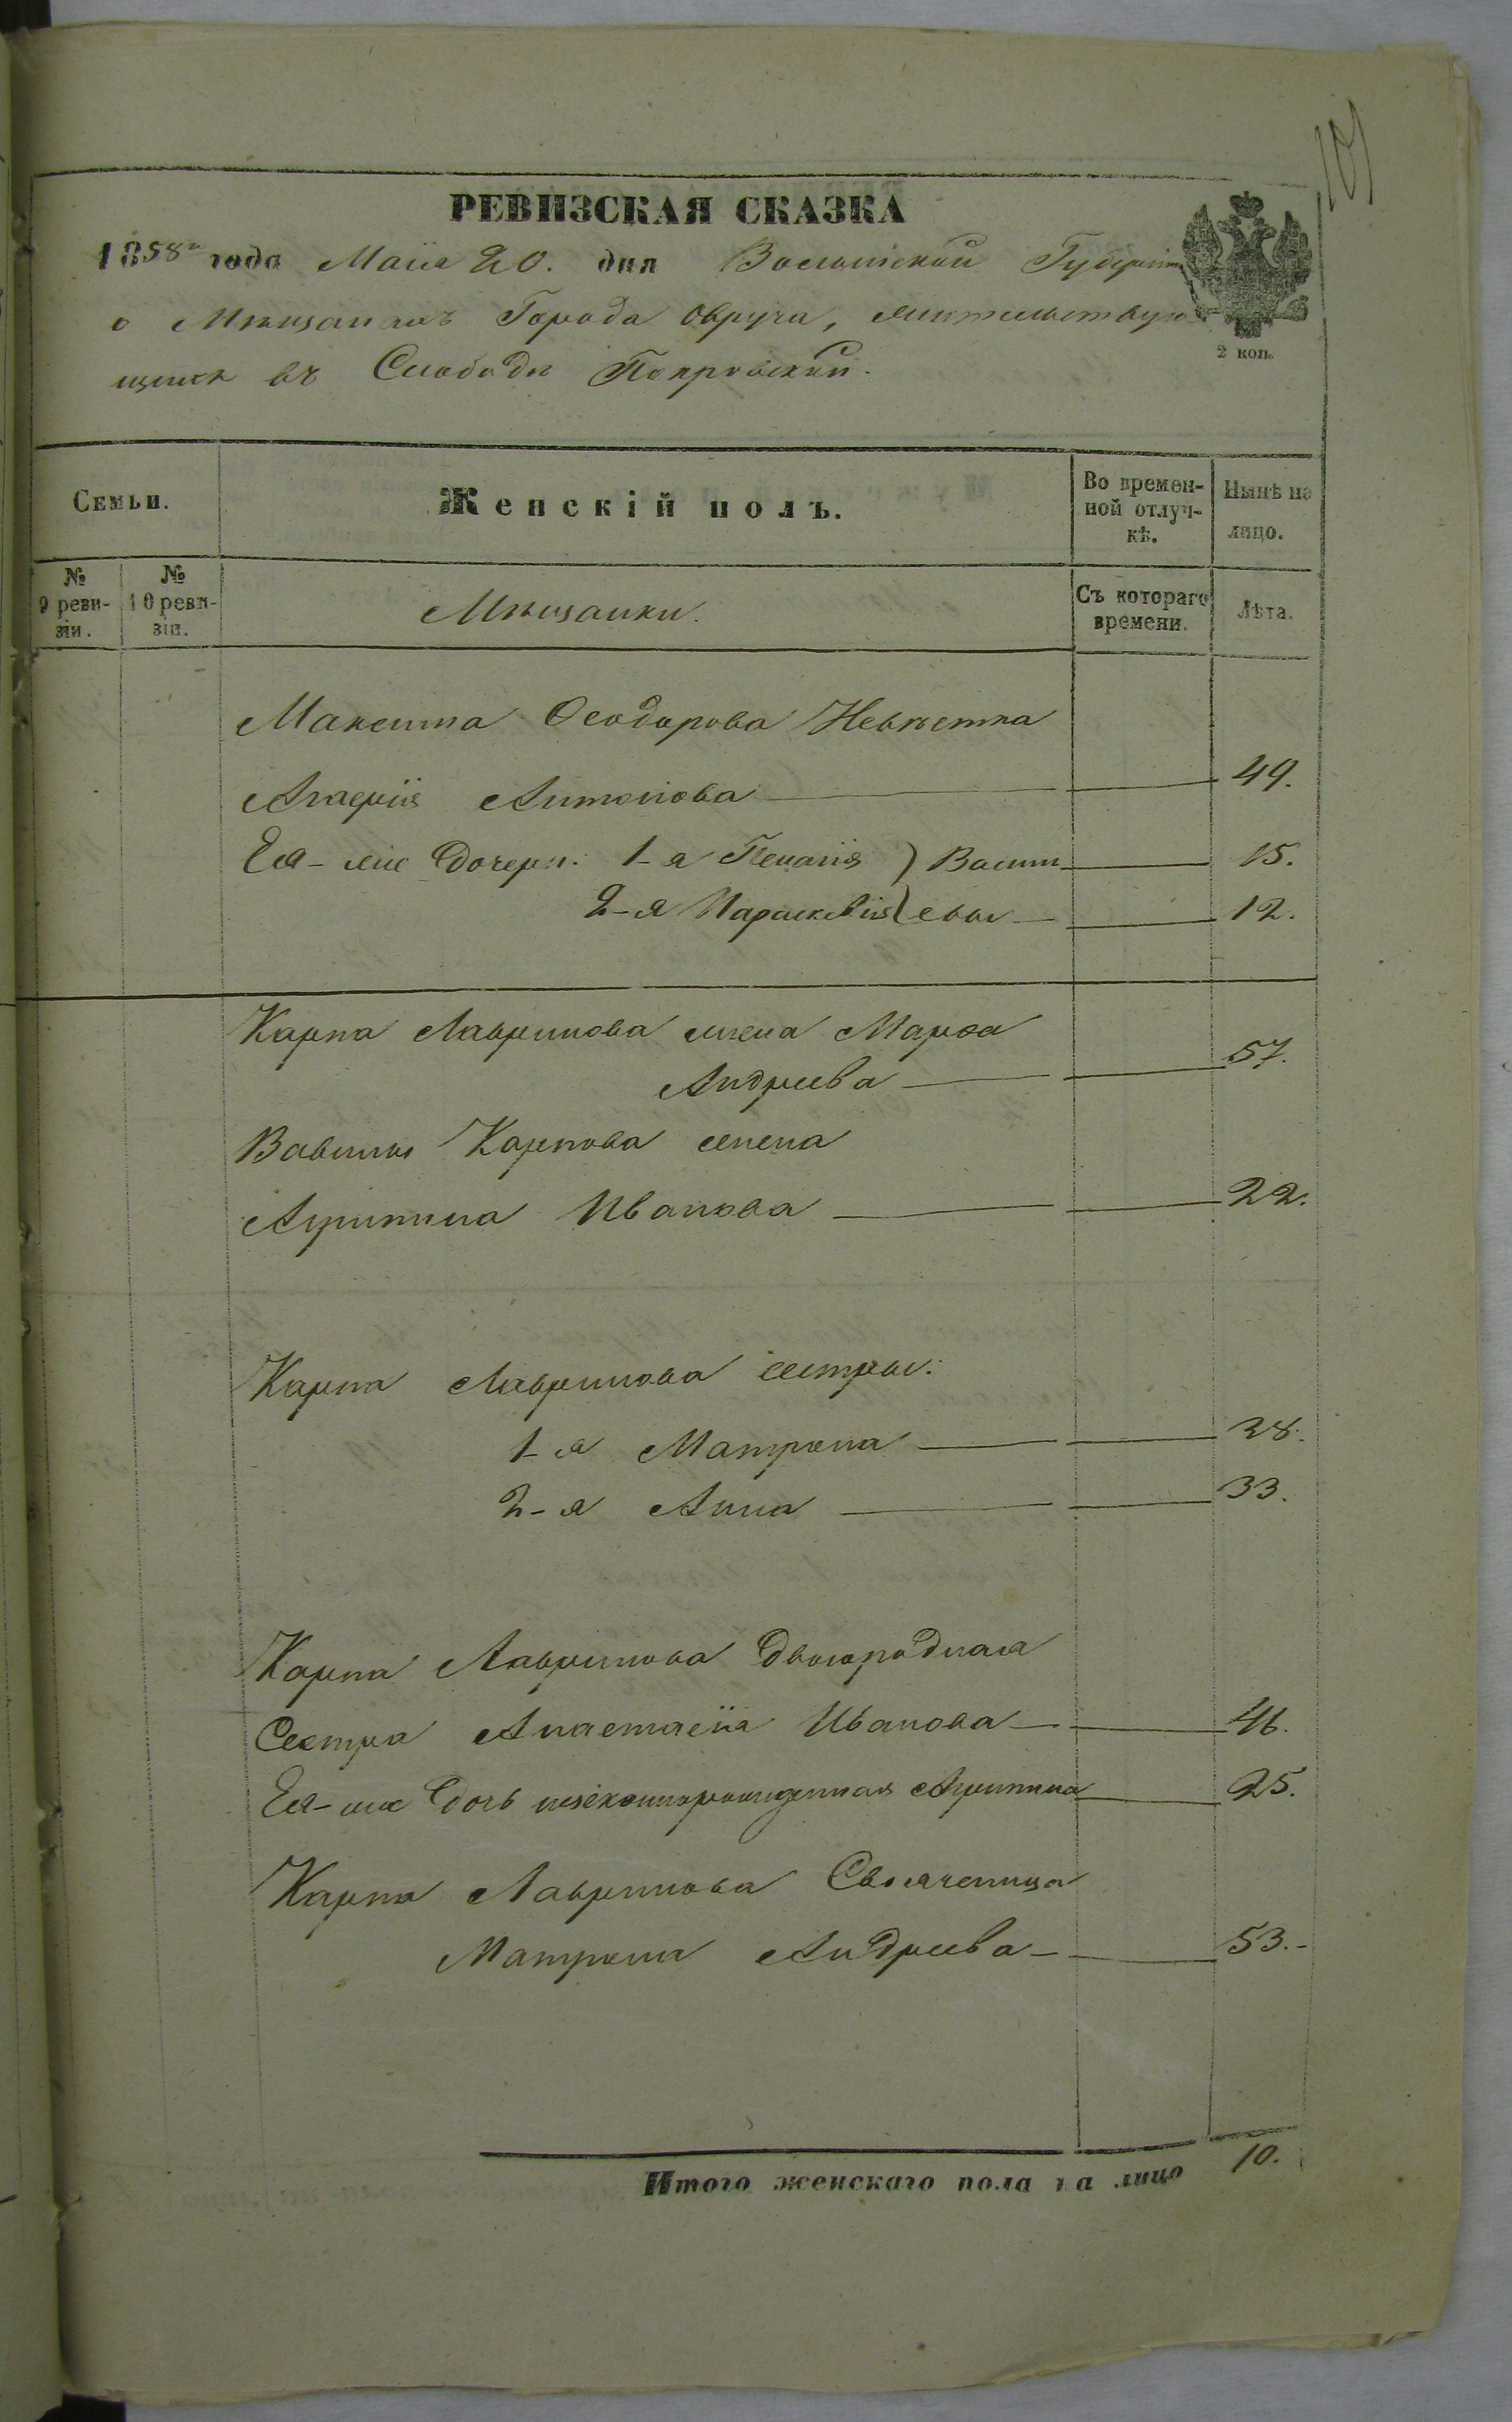 101
РЕВИЗСКАЯ СКАЗКА
1858го года Маія 20. дня Волынской Губерніи
о Мѣщанахъ Города Овруча, жительствую
щихъ въ Слободѣ Покровской.
2 коп.
Семьи.
Женскій полъ.
Во времен-
ной отлуч-
кѣ.
Нынѣ на
лицо.
№
9 реви-
зіи.
№
10 реви-
зіи.
Мѣщанки.
Съ котораго
времени.
Лѣта.
Максима Ѳеодорова Невѣстка
Агафія Антонова 49.
Ея-же дочери: 1-я Пелагія ) Васили 15.
2-я Параскевія ) евы 12.
Карпа Лавринова жена Марѳа
Андреева 57.
Вавилы Карпова жена
Агрипина Иванова 22.
Карпа Лавринова сестры:
1-я Матрена 38.
2-я Анна 33.
Карпа Лавринова двоюродная
Сестра Анастасія Иванова 46.
Ея-же дочь незаконнорожденная Агрипина 25.
Карпа Лавринова Свояченица
Матрена Андреева 53.
Итого женскаго пола на лицо 10.